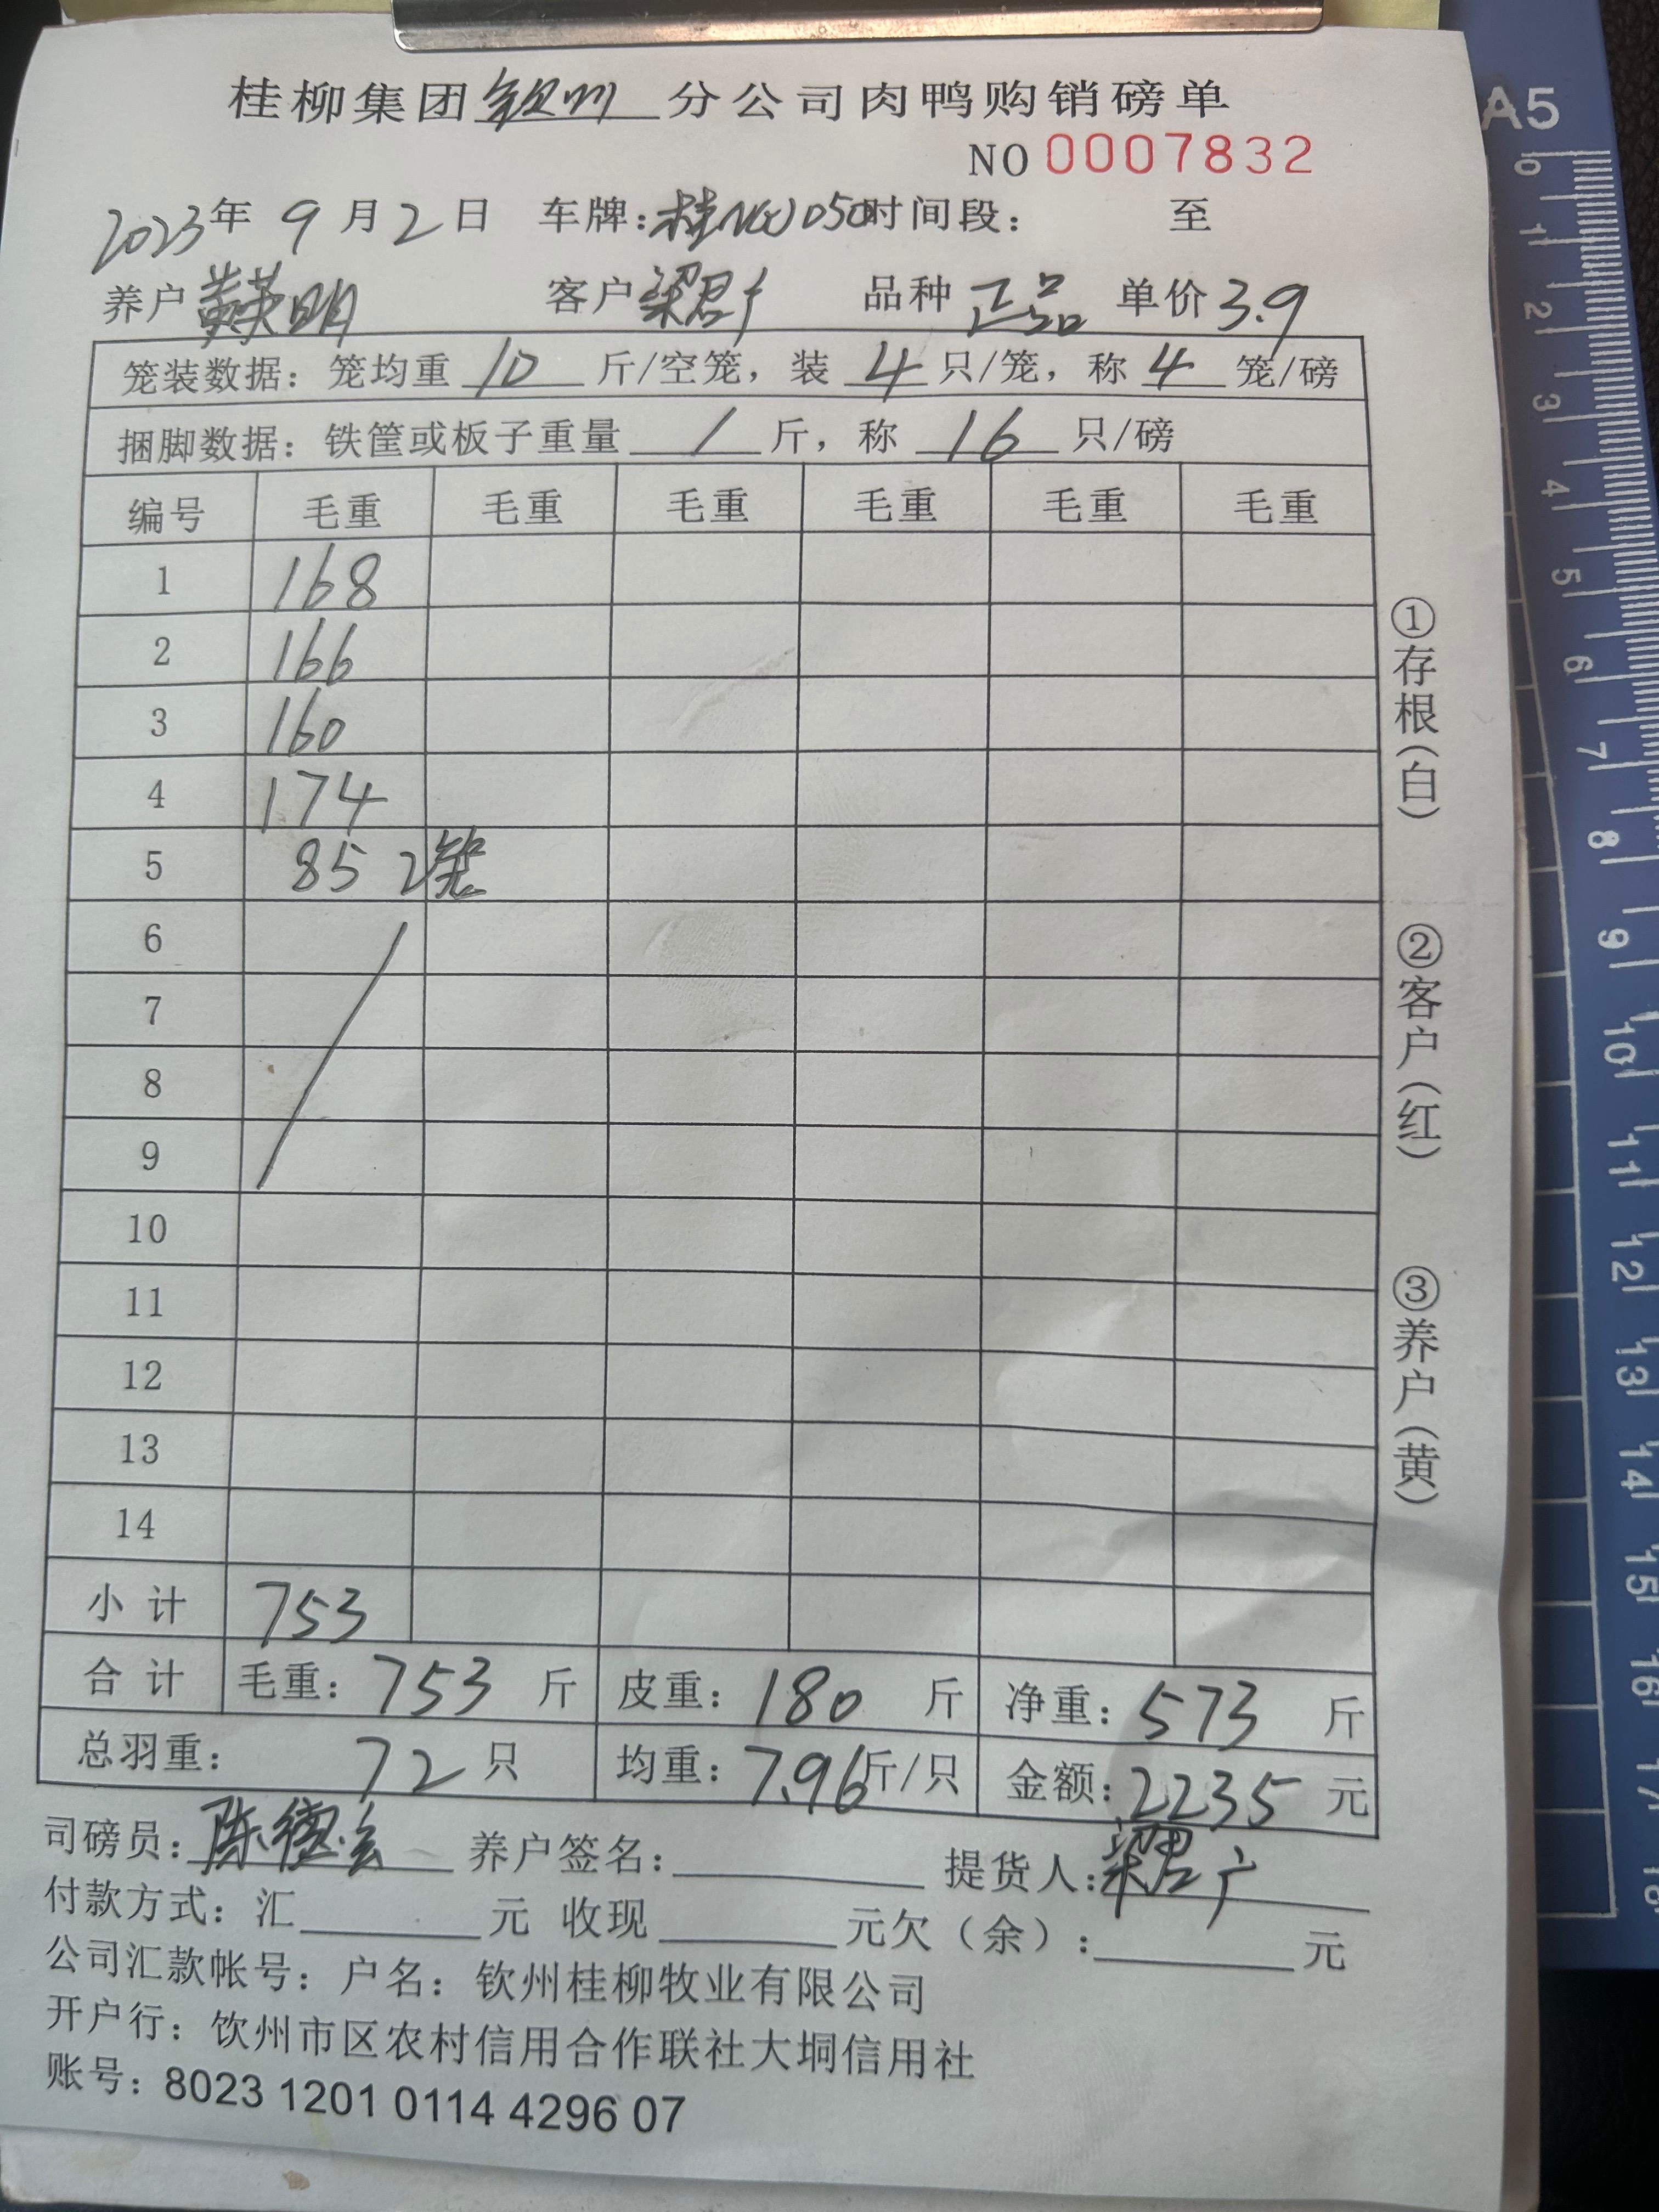 桂柳集团钦州分公司肉鸭购销磅单
NO 0007832
2023年 9 月 2 日 车牌: 时间段: 至
养户 黄英明 客户 梁君广 品种 正品 单价 3.9
笼装数据: 笼均重 10 斤/空笼, 装 4 只/笼, 称 4 笼/磅
捆脚数据: 铁筐或板子重量 / 斤, 称 16 只/磅
编号 毛重 毛重 毛重 毛重 毛重 毛重
1 168
2 166
3 160
4 174
5 85 2笼
6
7
8
9
10
11
12
13
14
小计 753
合计 毛重: 753 斤 皮重: 180 斤 净重: 573 斤
总羽重: 72 只 均重: 7.96斤/只 金额: 2235 元
司磅员: 陈德 养户签名: 提货人: 梁君广
付款方式: 汇 元 收现 元欠（余）: 元
公司汇款帐号: 户名: 钦州桂柳牧业有限公司
开户行: 饮州市区农村信用合作联社大垌信用社
账号: 8023 1201 0114 4296 07
①存根（白）
②客户（红）
③养户（黄）
A5
0
1
2
3
4
5
6
7
8
9
10
11
12
13
14
15
16
17
18